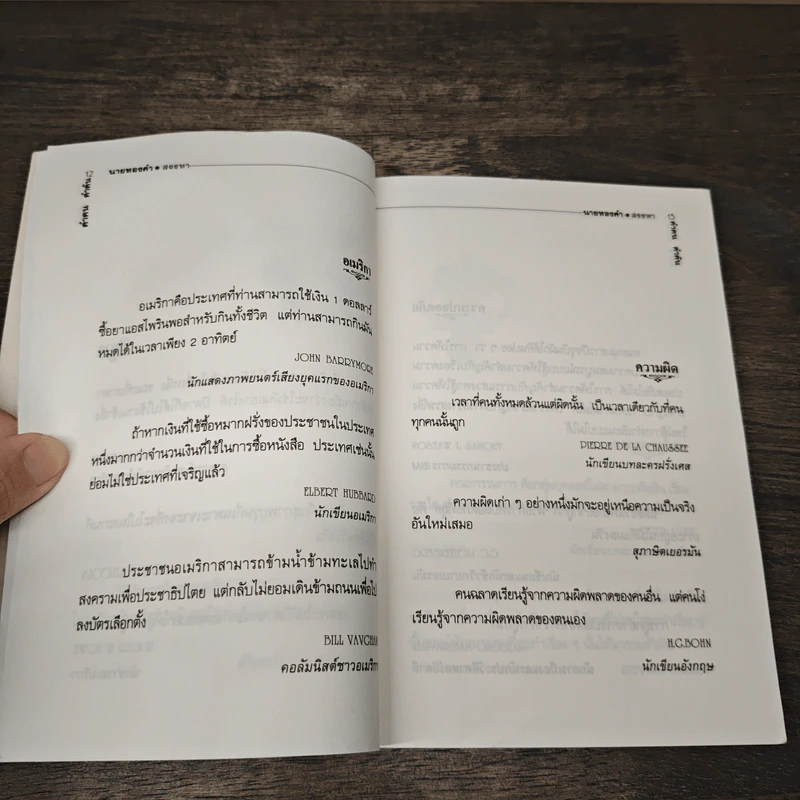 คำคน คำคัน 12
นายทองคำ • สรรหา
อเมริกา
อเมริกาคือประเทศที่ท่านสามารถใช้เงิน 1 ดอลลาร์
ซื้อยาแอสไพรินพอสำหรับกินทั้งชีวิต แต่ท่านสามารถกินมัน
หมดได้ในเวลาเพียง 2 อาทิตย์
JOHN BARRYMORE
นักแสดงภาพยนตร์เสียงยุคแรกของอเมริกา
ถ้าหากเงินที่ใช้ซื้อหมากฝรั่งของประชาชนในประเทศ
หนึ่งมากกว่าจำนวนเงินที่ใช้ในการซื้อหนังสือ ประเทศเช่นนั้น
ย่อมไม่ใช่ประเทศที่เจริญแล้ว
ELBERT HUBBARD
นักเขียนอเมริกา
ประชาชนอเมริกาสามารถข้ามน้ำข้ามทะเลไปทำ
สงครามเพื่อประชาธิปไตย แต่กลับไม่ยอมเดินข้ามถนนเพื่อไป
ลงบัตรเลือกตั้ง
BILL VAVGHAN
คอลัมนิสต์ชาวอเมริกา
นายทองคำ • สรรหา
คำคน คำคัน
ความผิด
เวลาที่คนทั้งหมดล้วนแต่ผิดนั้น เป็นเวลาเดียวกับที่คน
ทุกคนนั้นถูก
PIERRE DE LA CHAUSSEE
นักเขียนบทละครฝรั่งเศส
ความผิดเก่า ๆ อย่างหนึ่งมักจะอยู่เหนือความเป็นจริง
อันใหม่เสมอ
สุภาษิตเยอรมัน
คนฉลาดเรียนรู้จากความผิดพลาดของคนอื่น แต่คนโง่
เรียนรู้จากความผิดพลาดของตนเอง
H.G.BOHN
นักเขียนอังกฤษ